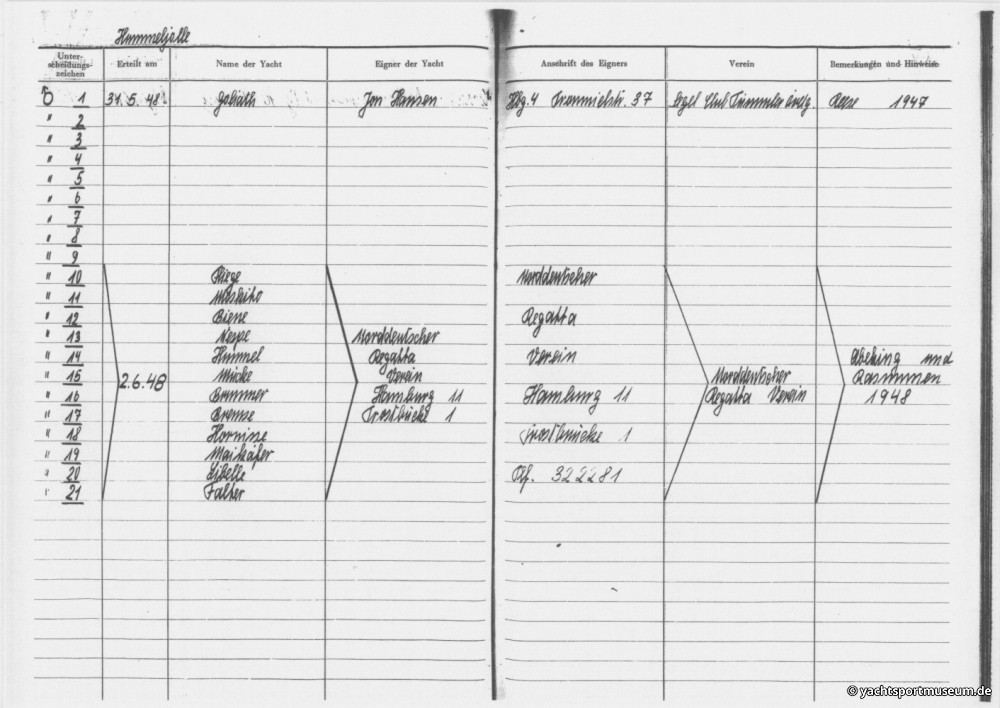 Hummeljolle
Unter-scheidungs-zeichen Erteilt am Name der Yacht Eigner der Yacht Anschrift des Eigners Verein Bemerkungen und Hinweise
1 31.5.48 Goliath Jon Hansen Hbg. 4 37 Segl. Club 1947
" 2
" 3
" 4
" 5
" 6
" 7
" 8
" 9
" 10 Fliege Norddeutscher
" 11 Moskito
" 12 Biene Regatta
" 13 Wespe Norddeutscher
" 14 Hummel Regatta Verein Abeking und
" 15 2.6.48 Mücke Verein Norddeutscher Rasmussen
" 16 Brummer Hamburg 11 Hamburg 11 Regatta Verein 1948
" 17 Bremse Trostbrücke 1
" 18 Hornisse Trostbrücke 1
" 19 Maikäfer
" 20 Libelle Tlf. 322281
" 21 Falter
© yachtsportmuseum.de